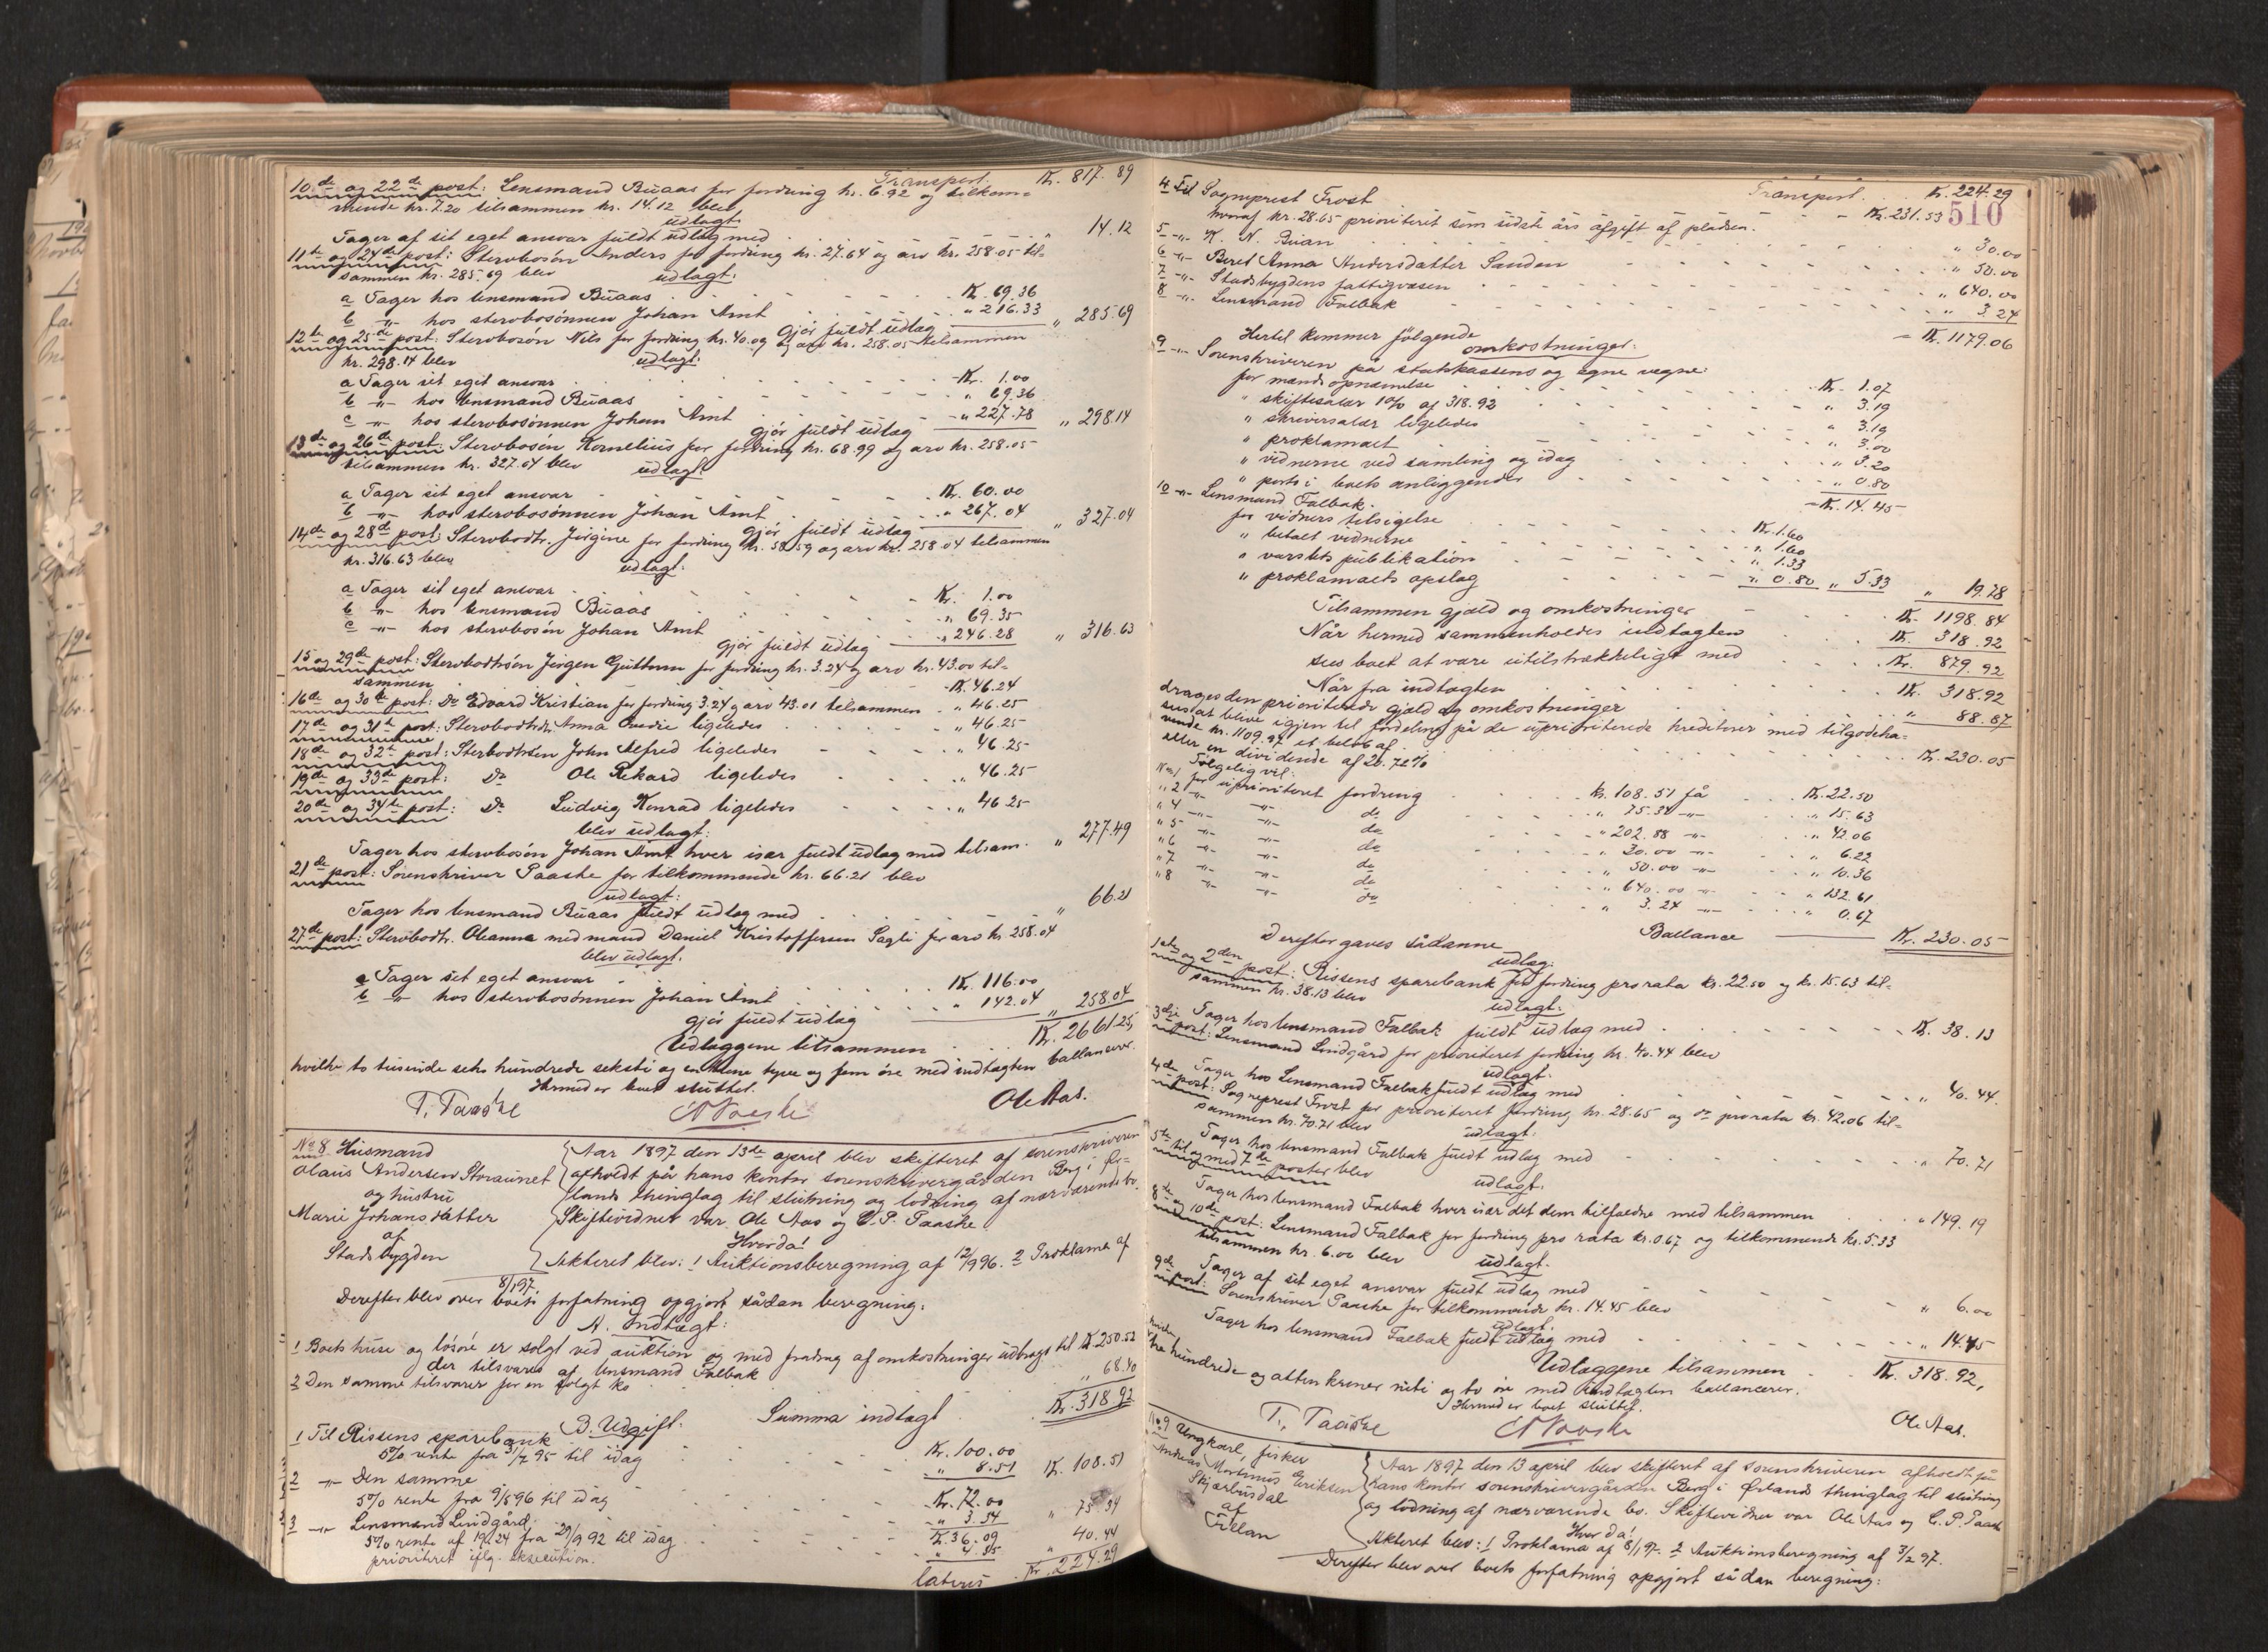 Transport. Kr. 817.89
10de og 22de post: Lensmand Buaas for fordring kr. 6.92 og tilkom-
mende kr. 7.20 tilsammen kr. 14.12 blev
udlagt.
Tager af sit eget ansvar fuldt udlæg med " 14.12
11te og 24de post: Stervbosøn Anders for fordring kr. 27.64 og arv kr. 258.05 til-
sammen kr. 285.69 blev udlagt:
a Tager hos lensmand Buaas Kr. 69.36
b -"- hos stervbosønnen Johan Arnt " 216.33 " 285.69
Gjør fuldt udlæg
12te og 25de post: Stervbosøn Nils for fordring kr. 40.09 og arv kr. 258.05 tilsammen
kr. 298.14 blev udlagt:
a Tager sit eget ansvar Kr. 1.00
b -"- hos lensmand Buaas " 69.36
c -"- hos stervbosønnen Johan Arnt " 227.78 " 298.14
gjør fuldt udlæg
13de og 26de post: Stervbosøn Kornelius for fordring kr. 68.99 og arv kr. 258.05
tilsammen kr. 327.04 blev udlagt:
a Tager sit eget ansvar Kr. 60.00
b -"- hos stervbosønnen Johan Arnt " 267.04 " 327.04
gjør fuldt udlæg
14de og 28de post: Stervbodtr. Jørgine for fordring kr. 58.59 og arv kr. 258.04 tilsammen
kr. 316.63 blev udlagt:
a Tager sit eget ansvar Kr. 1.00
b -"- hos lensmand Buaas " 69.35
c -"- hos stervbosøn Johan Arnt " 246.28 " 316.63
gjør fuldt udlæg
15 og 29de post: Stervbodtrsøn Jørgen Guttorm for fordring kr. 3.24 og arv kr. 43.00 til-
sammen Kr. 46.24
16de og 30te post: Do Edvard Kristian for fordring 3.24 og arv 43.01 tilsammen " 46.25
17de og 31te post: Stervbodtrdtr. Anna ligeledes " 46.25
18de og 32te post: Stervbodtrsøn John Alfred ligeledes " 46.25
19de og 33de post: Do Ole Rikard ligeledes " 46.25
20de og 34te post: Do Ludvig Konrad ligeledes " 46.25
blev udlagt:
Tager hos stervbosøn Johan Arnt hver især fuldt udlæg med tilsam. " 277.49
21de post: Sorenskriver Paaske for tilkommende kr. 66.21 blev
udlagt:
Tager hos lensmand Buaas fuldt udlæg med " 66.21
27de post: Stervbodtr. Oleanna med mand Daniel Kristoffersen Sagli for arv kr. 258.04
blev udlagt.
a Tager sit eget ansvar Kr. 116.00
b -"- hos stervbosønnen Johan Arnt " 142.04 " 258.04
gjør fuldt udlæg
Udlæggene tilsammen Kr. 2661.25,
hvilke to tusinde seks hundrede seksti og en krone tyve og fem øre med indtægten ballancerer.
Hermed er boet sluttet.
T. Paaske Ole Aas.
No 8 Husmand
Olaus Andersen Storaunet
og hustru
Marie Johansdatter
af
Stadsbygden
Aar 1897 den 13de april blev skifteret af sorenskriveren
afholdt på hans kontor sorenskrivergården Berg i Ør-
lands thinglag til slutning og lodning af nærværende bo.
Skiftevidner var Ole Aas og C. P. Paaske
Hvorda!
Akteret blev: 1 Auktionsberegning af 12/9 96. 2 Proklama af
8/1 97.
Derefter blev over boets forfatning opgjort sådan beregning:
A. Indtægt:
1 Boets huse og løsøre er solgt ved auktion og med fradrag af omkostninger udbragt til Kr. 250.52
der tilsvares af lensmand Falbak
2 Den samme tilsvarer for en solgt ko " 68.40
Summa indtægt Kr. 318.92
B. Udgift.
1 Til Rissens sparebank Kr. 100.00
5% rente fra 31/7 95 til idag " 8.51 Kr. 108.51
2 -"- Den samme Kr. 72.00
5% rente fra 9/8 96 til idag " 3.34 " 75.34
3 -"- Lensmand Lindgård Kr. 36.09
5% rente af 19.24 fra 29/9 92 til idag " 4.35 " 40.44
prioriteret iflg. eksecution.
lateris Kr. 224.29
Transport. Kr. 224.29
510
4 Til Sogneprest Frost Kr. 231.53
hvoraf kr. 28.65 prioriteret som sidste års afgift af pladsen.
5 -"- K. N. Buan " 30.00
6 -"- Beret Anna Andersdatter Sanden " 50.00
7 -"- Stadsbygdens fattigvæsen " 640.00
8 -"- Lensmand Falbak " 3.24
Kr. 1179.06
Hertil kommer følgende
omkostninger:
9 -"- Sorenskriveren på statskassens og egne vegne:
for mandsopnævnelse Kr. 1.07
" skiftesalær 1% af 318.92 " 3.19
" skriversalær ligeledes " 3.19
" proklamaet " 3.00
" vidnerne ved samling og idag " 3.20
" porto i boets anliggender " 0.80
Kr. 14.45
10 -"- Lensmand Falbak.
for vidners tilsigelse Kr. 1.60
" betalt vidnerne " 1.60
" varslets publikation " 1.33
" proklamaets opslag " 0.80 " 5.33 " 19.78
Tilsammen gjæld og omkostninger Kr. 1198.84
Når hermed sammenholdes indtægten Kr. 318.92
sees boet at være utilstrækkeligt med Kr. 879.92
Når fra indtægten Kr. 318.92
drages den prioriterede gjæld og omkostninger " 88.87
sees at blive igjen til fordeling på de uprioriterede kreditorer med tilgodeha-
vende kr. 1109.97 et beløb af Kr. 230.05
eller en dividende af 20.72%
Følgelig vil:
No 1 for uprioriteret fordring kr. 108.51 få Kr. 22.50
" 2 -"- do " 75.34 -"- " 15.63
" 4 -"- do " 202.88 -"- " 42.06
" 5 -"- do " 30.00 -"- " 6.22
" 6 -"- do " 50.00 -"- " 10.36
" 7 -"- do " 640.00 -"- " 132.61
" 8 -"- do " 3.24 -"- " 0.67
Ballance Kr. 230.05
Derefter gaves sådanne
udlæg:
1ste og 2den post: Rissens sparebank for fordring pro rata kr. 22.50 og kr. 15.63 til-
sammen kr. 38.13 blev udlagt:
Tager hos lensmand Falbak fuldt udlæg med Kr. 38.13
3die post: Lensmand Lindgård for prioriteret fordring kr. 40.44 blev
udlagt.
Tager hos Lensmand Falbak fuldt udlæg med " 40.44.
4de post: Sogneprest Frost for prioriteret fordring kr. 28.65 og do pro rata kr. 42.06 til-
sammen kr. 70.71 blev udlagt.
Tager hos lensmand Falbak fuldt udlæg med " 70.71
5te til og med 7de poster blev udlagt.
Tager hos lensmand Falbak hver især det dem tilfaldne med tilsammen " 149.19
8de og 10de post: Lensmand Falbak for fordring pro rata kr. 0.67 og tilkommende kr. 5.33
tilsammen kr. 6.00 blev udlagt.
Tager af sit eget ansvar fuldt udlæg med " 6.00
9de post: Sorenskriver Paaske for tilkommende kr. 14.45 blev
udlagt.
Tager hos lensmand Falbak fuldt udlæg med " 14.45
Udlæggene tilsammen Kr. 318.92,
hvilke
tre hundrede og atten kroner niti og to øre med indtægten ballancerer.
Hermed er boet sluttet.
T. Paaske Ole Aas.
No 9 Ungkarl, fisker
Andreas Mortinus Eriksen
af
Fillan
Aar 1897 den 13 april blev skifteret af sorenskriveren afholdt på
hans kontor sorenskrivergården Berg i Ørlands thinglag til slutning
og lodning af nærværende bo. Skiftevidner var Ole Aas og C. P. Paaske
Hvorda!
Akteret blev: 1 Proklama af 8/1 97. 2 Auktionsberegning af 3/2 97.
Derefter blev over boets forfatning opgjort sådan beregning: